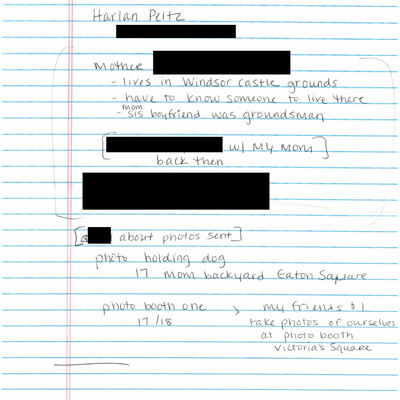 Harlan Peltz
Mother
- lives in Windsor castle grounds
- have to know someone to live there
mom
- sis boyfriend was groundsman
[ w/ My Mom ]
back then
[ about photos sent ]
photo holding dog
17 mom backyard Eaton Square
photo booth one > my friends & I
17/18 take photos of ourselves
at photo booth
Victoria's Square